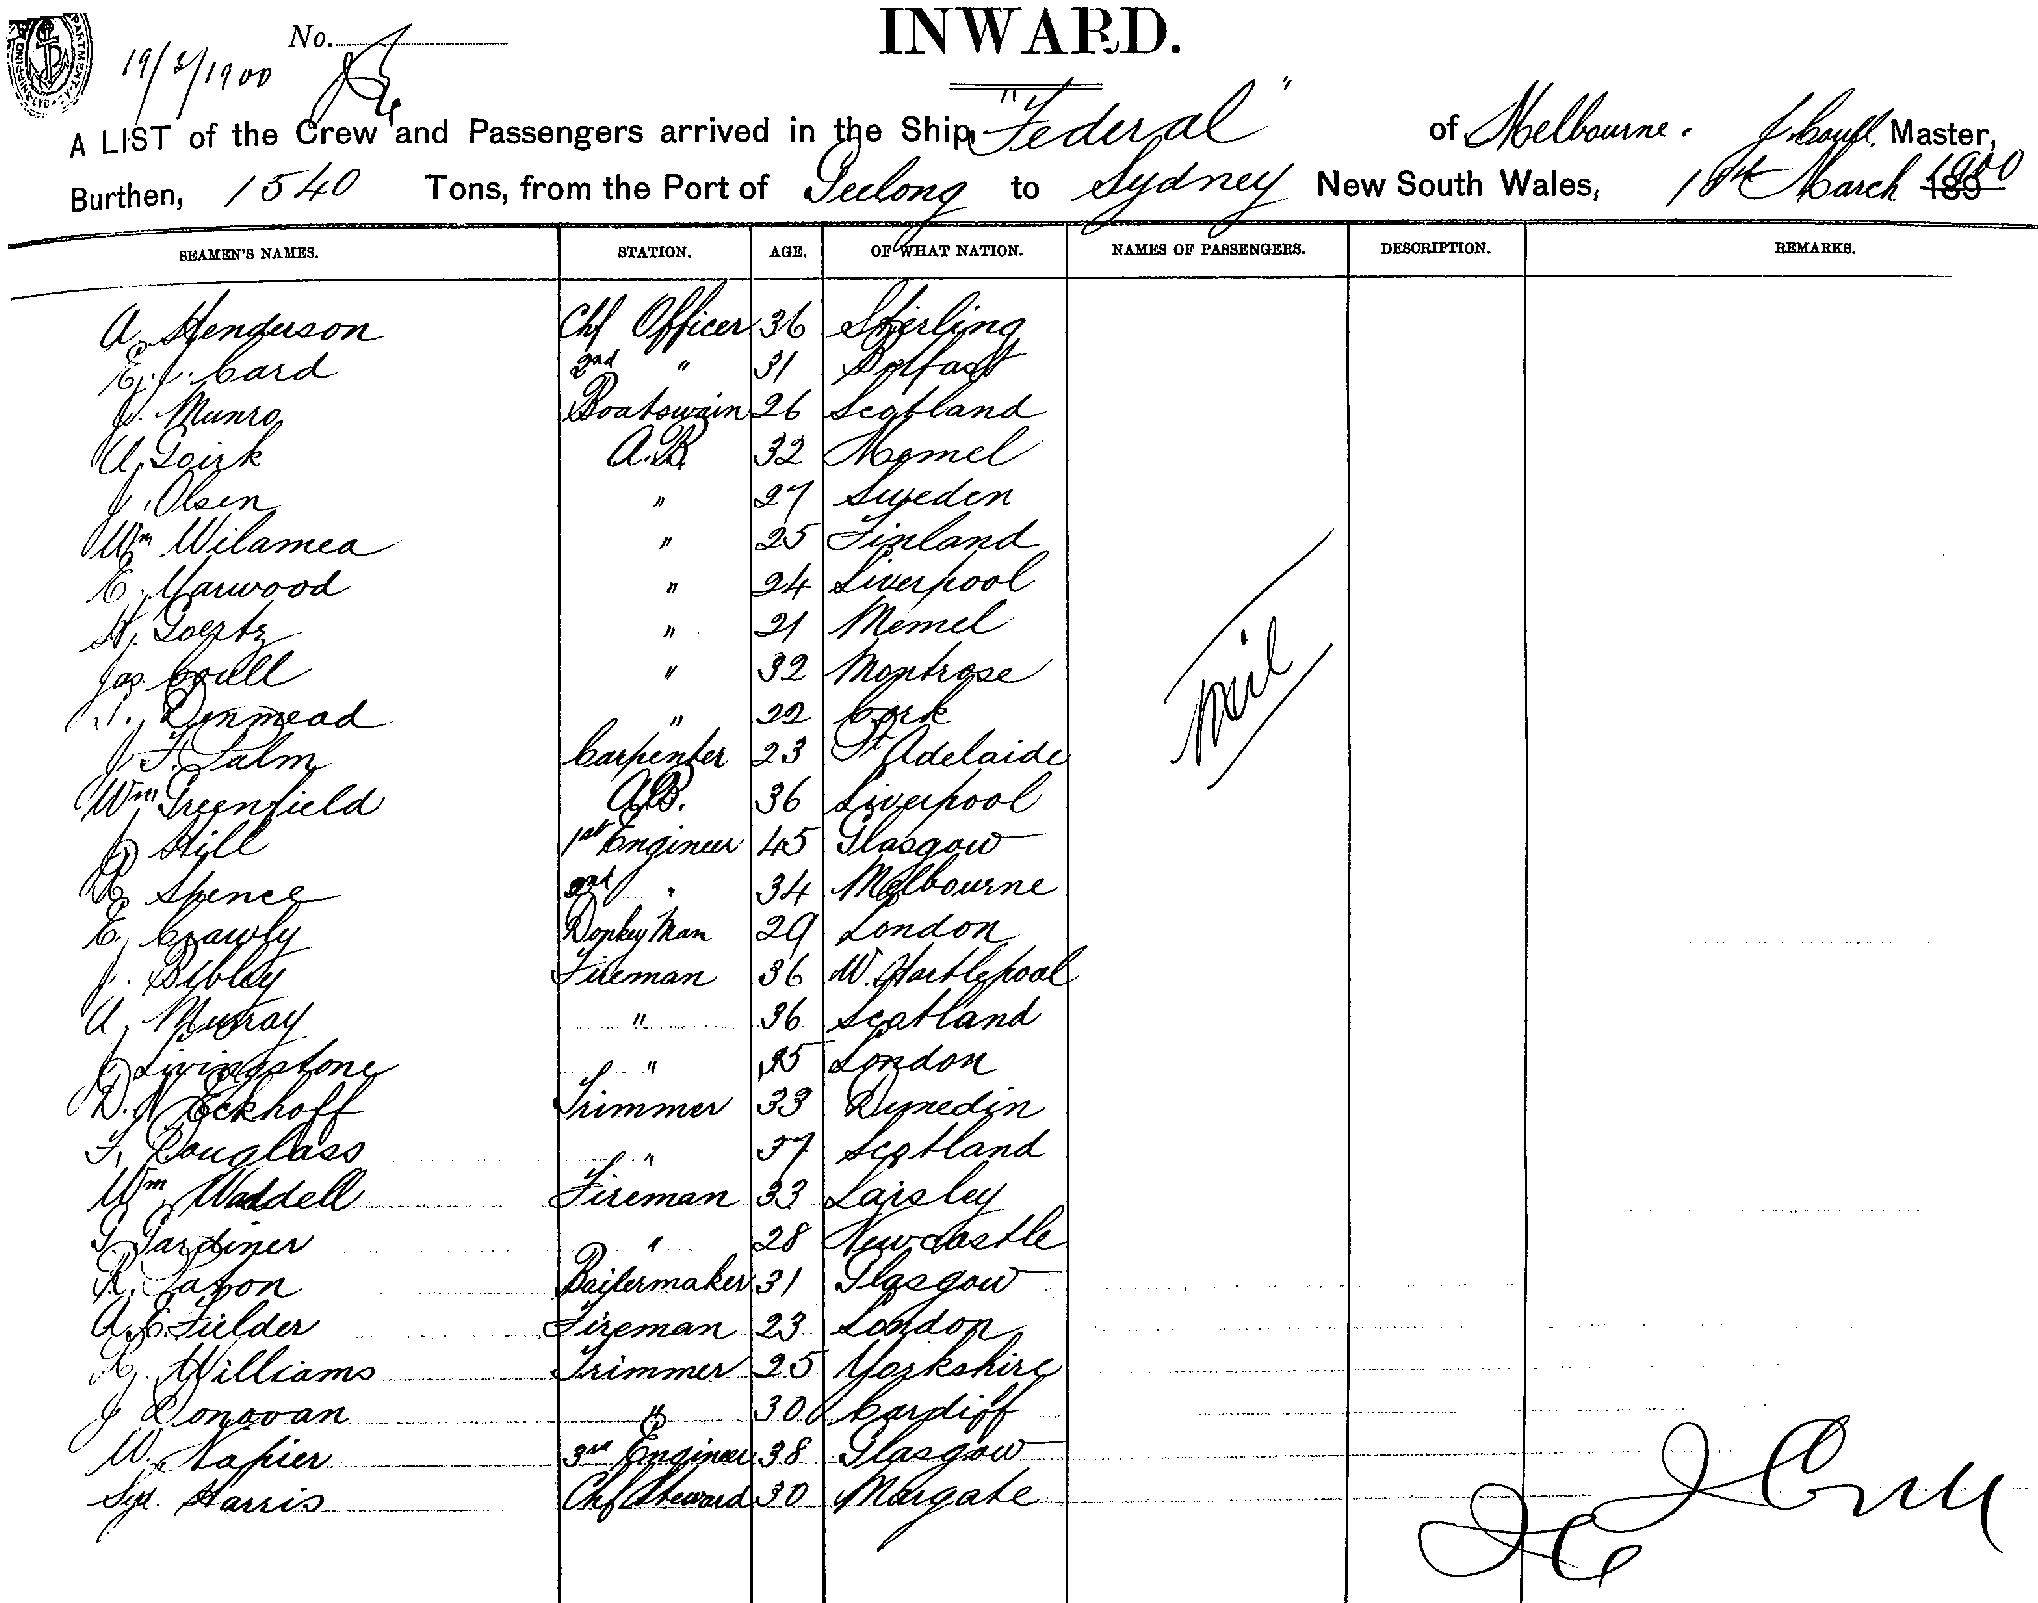 INWARD.
No.
19/3/1900
A LIST of the Crew and Passengers arrived in the Ship "Federal" of Melbourne. J. Coull, Master,
Burthen, 1540 Tons, from the Port of Geelong to Sydney New South Wales, March 189 1900
SEAMEN'S NAMES. STATION. AGE. OF WHAT NATION. NAMES OF PASSENGERS. DESCRIPTION. REMARKS.
A. Henderson Chf Officer 36 Stirling
E. J. Card 2nd " 31 Belfast
J. Munro Boatswain 26 Scotland
A. A.B. 32 Memel
J. Olsen " 27 Sweden
Wm Wilamea " 25 Finland
E. Marwood " 24 Liverpool
H. Goertz " 21 Memel
Jas. Coull " 32 Montrose
Dinmead " 22 Cork
J. F. Salm Carpenter 23 Pt Adelaide
Wm Greenfield A.B. 36 Liverpool
J. Hill 1st Engineer 45 Glasgow
R. Spence 2nd " 34 Melbourne
E. Crawly Donkey Man 29 London
J. Bibley Fireman 36 W. Hartlepool
A. Murray " 36 Scotland
J. Livingstone " 35 London
D. Eckhoff Trimmer 33 Dunedin
F. Douglass " 37 Scotland
Wm Waddell Fireman 33 Paisley
Gardiner " 28 Newcastle
R. Paton Boilermaker 31 Glasgow
A. E. Fielder Fireman 23 London
R. Williams Trimmer 25 Yorkshire
J Donovan " 30 Cardiff
W. Napier 3rd Engineer 38 Glasgow
Syd. Harris Chf Steward 30 Margate
Nil
J Coull